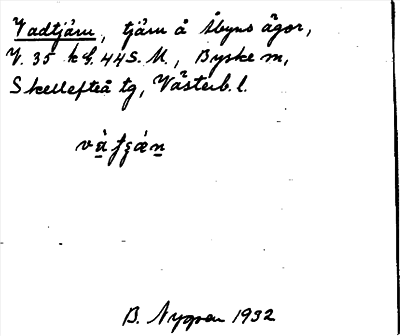 Vadtjärn, tjärn å Åbyns ägor,
V. 35 kf. 44 S. M., Byske sn,
Skellefteå tg, Västerb. l.
B. Nygren 1932